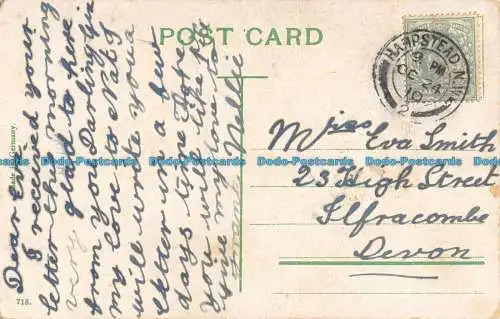 POST CARD
HAMPSTEAD N.W.
9 PM
OC 24
10
Dear Eva
I received your
letter this morning
very glad to hear
from you Darling Give
my love to Nat I
will write you a
letter in a few
days time
you will like
give my love to
Nellie
Miss Eva Smith
23 High Street
Ilfracombe
Devon
Made in Germany.
718.
Dodo-Postcards Dodo-Postcards Dodo-Postcards Dodo-Postcards Dodo-Postcards